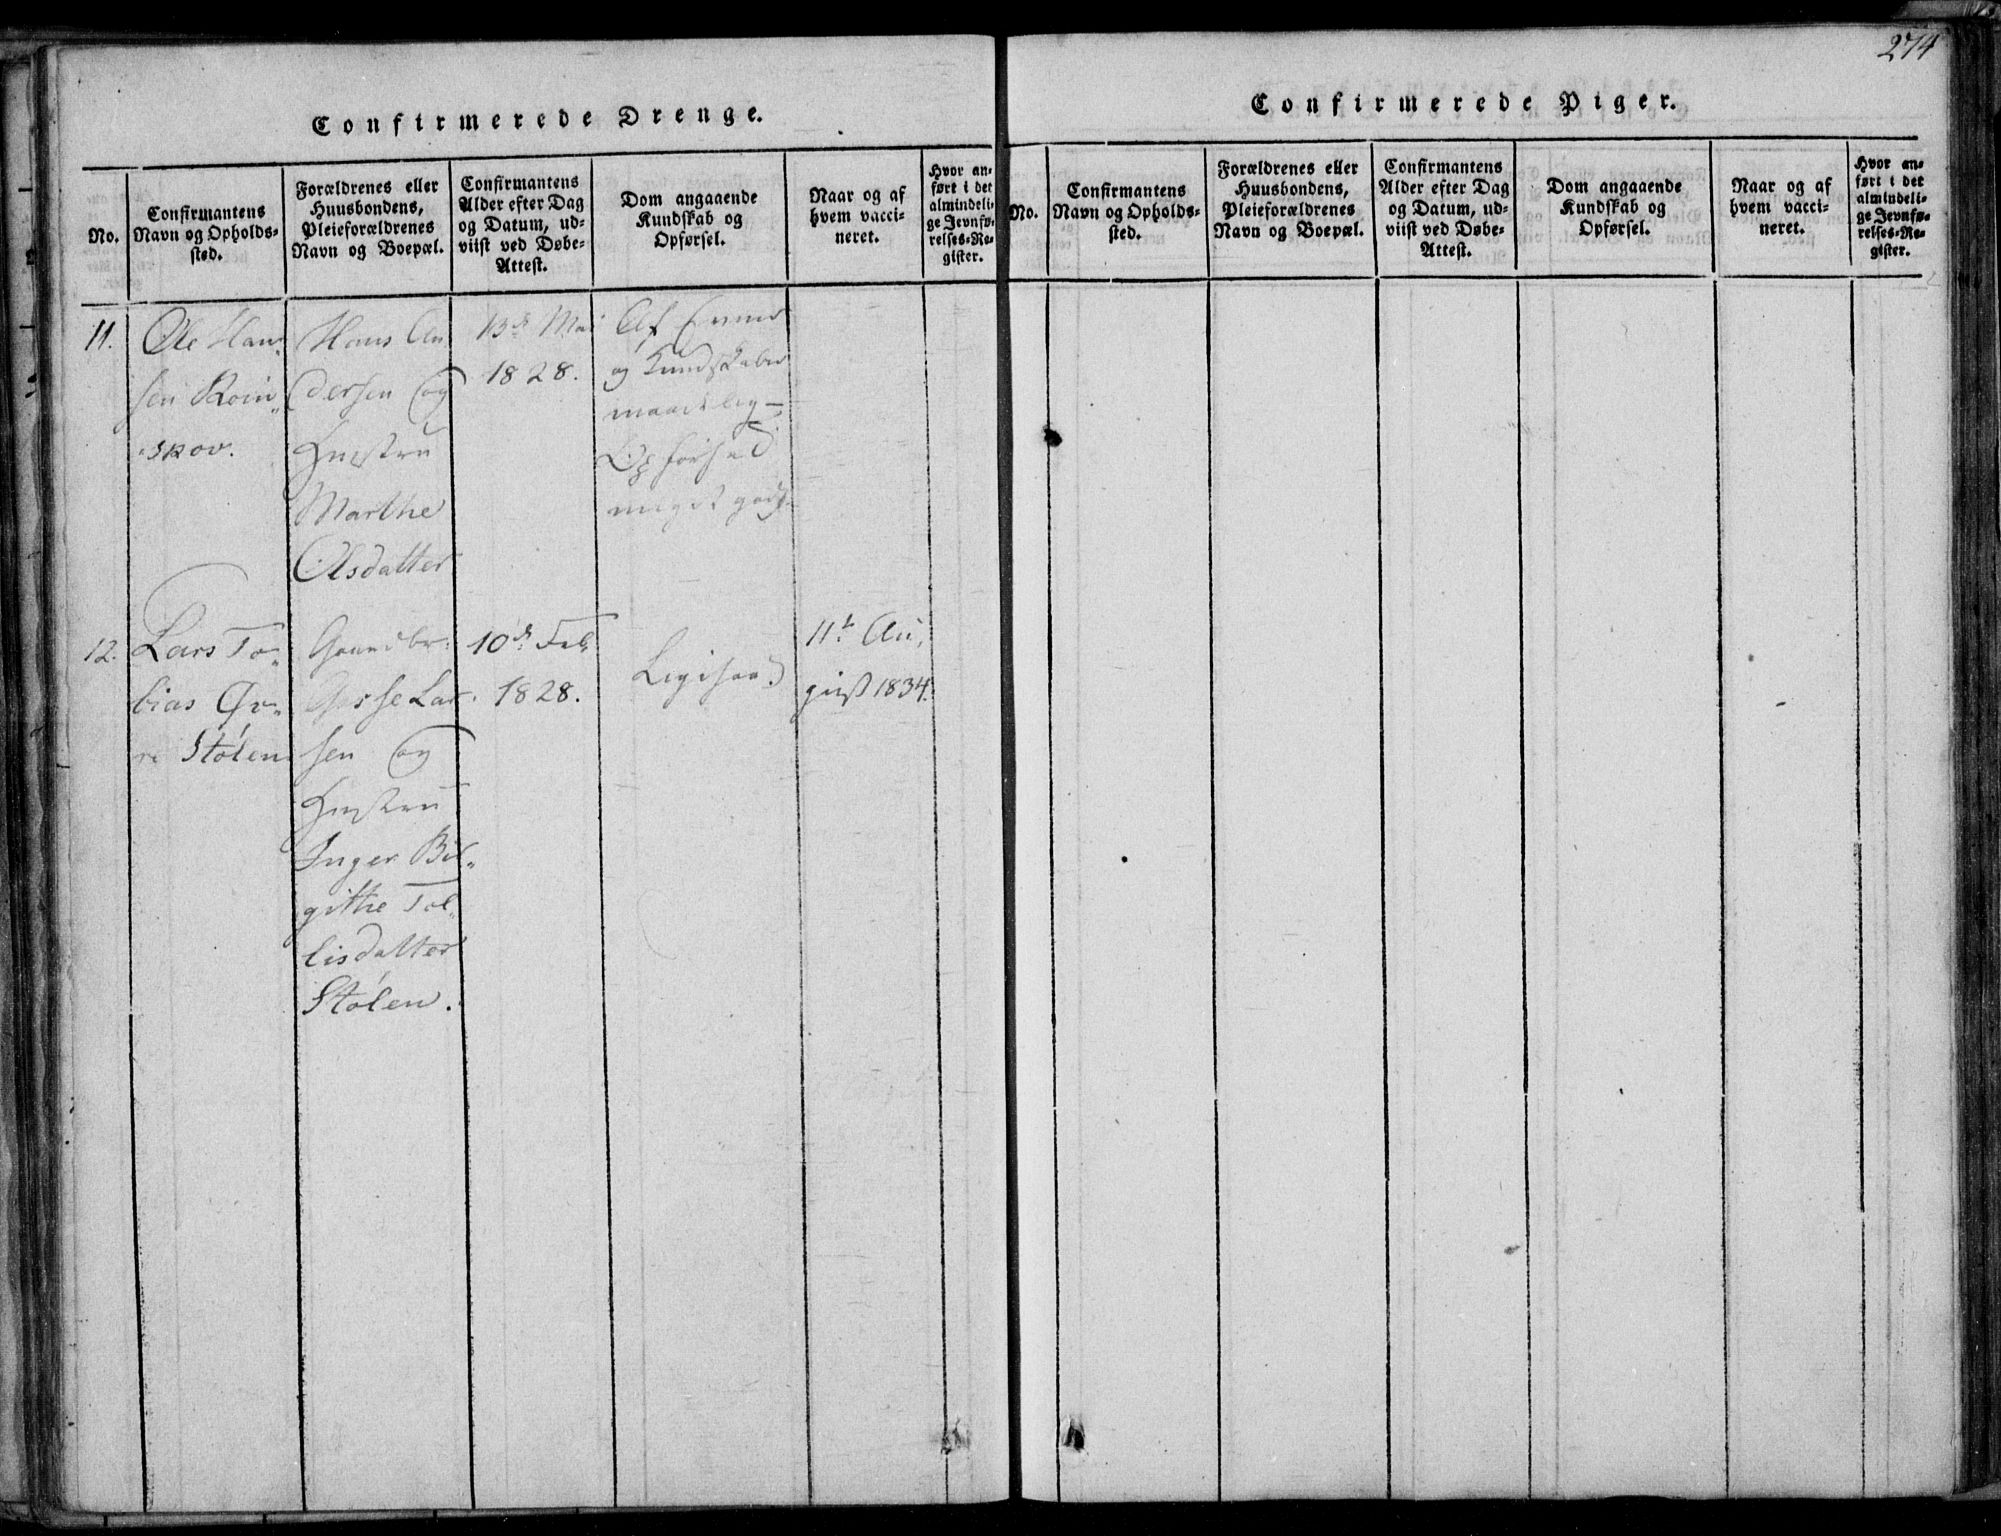 274
Confirmerede Drenge.
No.
Confirmantens
Navn og Opholds-
sted.
Forældrenes eller
Huusbondens,
Pleieforældrenes
Navn og Boepæl.
Confirmantens
Alder efter Dag
og Datum, ud-
viist ved Døbe-
Attest.
Dom angaaende
Kundskab og
Opførsel.
Naar og af
hvem vacci-
neret.
Hvor an-
ført i det
almindeli-
ge Jevnfø-
relses-Re-
gister.
11.
Ole Han-
sen Roin-
skov.
Hans An
dersen og
Hustru
Marthe
Olsdatter
13de Mai
1828.
Af Evner
og Kundskaber
maadelig,
Opførsel
meget god.
12.
Lars To-
bias Øv-
re Stølen
Gaardbr.
Lar-
sen og
Hustru
Inger Bir-
githe Tol-
lisdatter
Stølen.
10de Feb.
1828.
Ligesaa.
11te Au,
gust 1834.
Confirmerede Piger.
No.
Confirmantens
Navn og Opholds-
sted.
Forældrenes eller
Huusbondens,
Pleieforældrenes
Navn og Boepæl.
Confirmantens
Alder efter Dag
og Datum, ud-
viist ved Døbe-
Attest.
Dom angaaende
Kundskab og
Opførsel.
Naar og af
hvem vacci-
neret.
Hvor an-
ført i det
almindeli-
ge Jevnfø-
relses-Re-
gister.